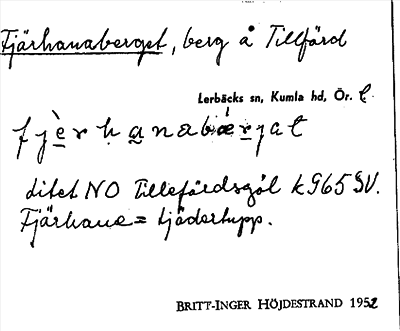 Fjärhanaberget, berg å Tillförd
Lerbäcks sn, Kumla hd, Ör. l.
fjèrhanabærjat
litet NO Tillefördsgöl k 965 SV.
Fjärhane = tjädertupp.
BRITT-INGER HÖJDESTRAND 1952